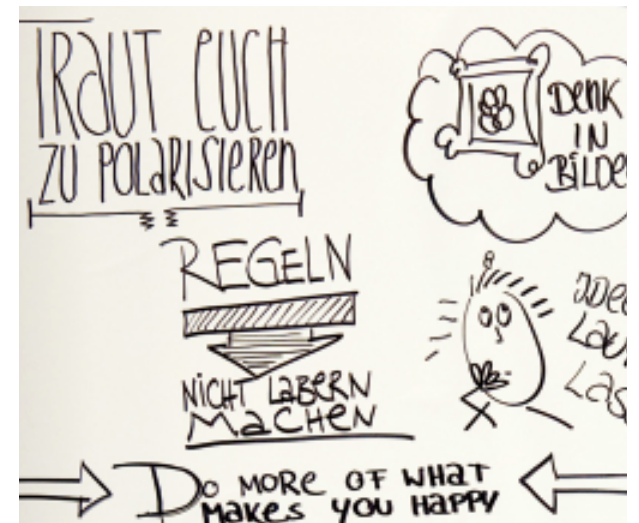 TRAUT EUCH
ZU POLARISIEREN
DENK
IN
REGELN
NICHT LABERN
MACHEN
DO MORE OF WHAT
MAKES YOU HAPPY